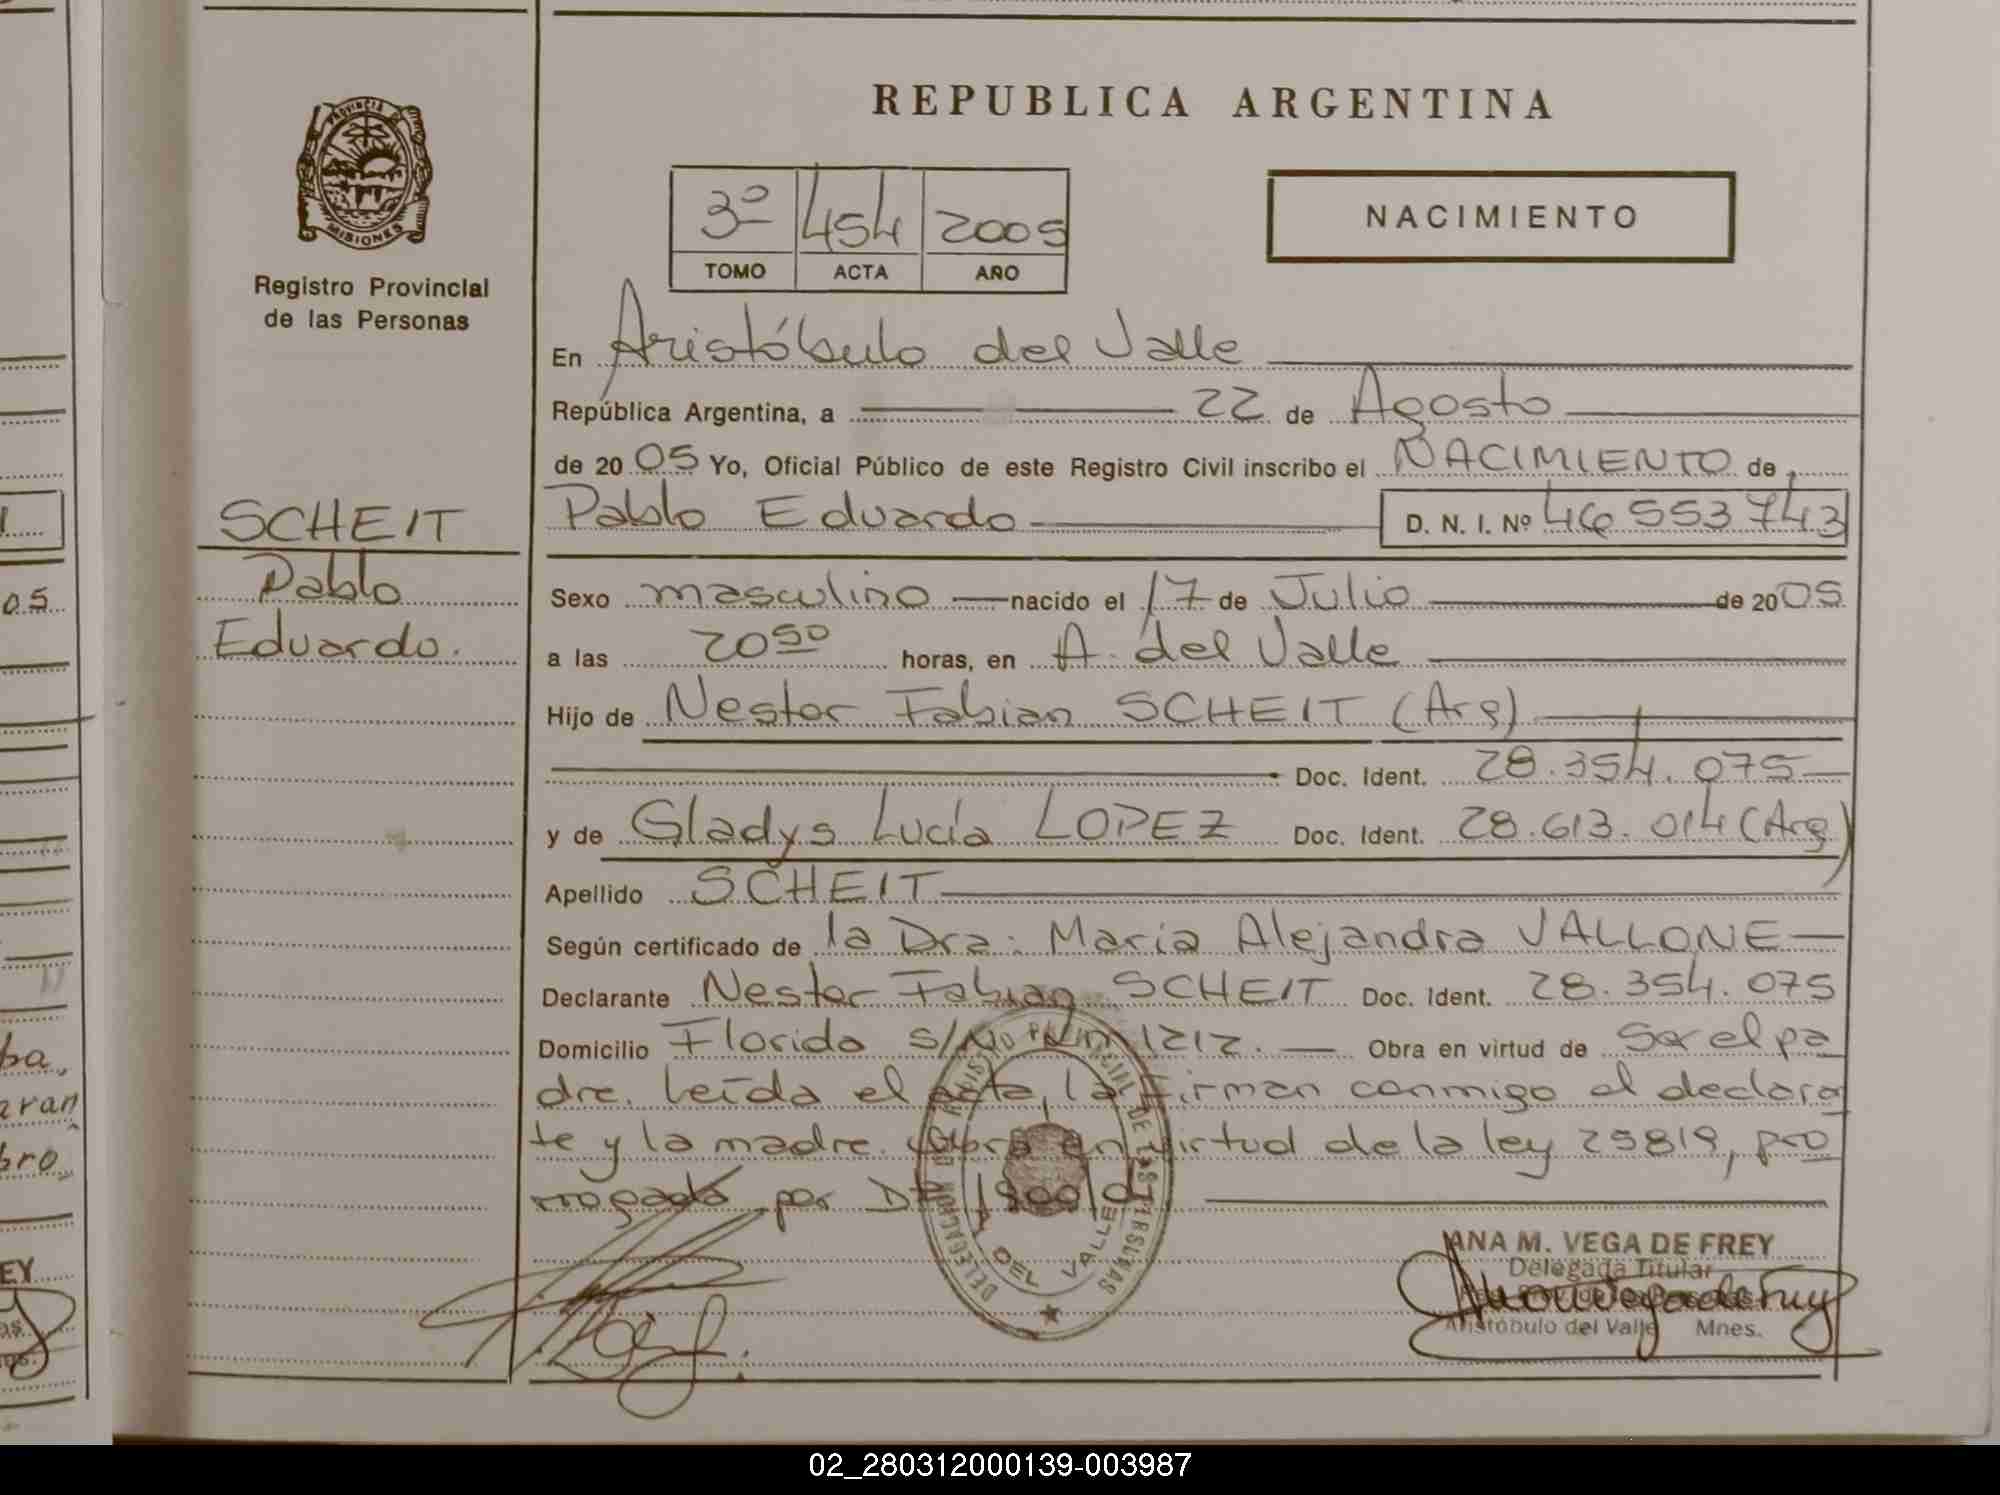 REPUBLICA ARGENTINA
PROVINCIA DE
MISIONES
Registro Provincial
de las Personas
3º 454 2005
TOMO ACTA AÑO
NACIMIENTO
En Aristóbulo del Valle
República Argentina, a 22 de Agosto
de 2005 Yo, Oficial Público de este Registro Civil inscribo el NACIMIENTO de
Pablo Eduardo D. N. I. Nº 46 553 743
SCHEIT
Pablo
Eduardo.
Sexo masculino nacido el 17 de Julio de 2005
a las 20 50 horas, en A. del Valle
Hijo de Nestor Fabian SCHEIT (Arg)
Doc. Ident. 28.354.075
y de Gladys Lucía LOPEZ Doc. Ident. 28.613.014 (Arg)
Apellido SCHEIT
Según certificado de la Dra. Maria Alejandra VALLONE
Declarante Nestor Fabian SCHEIT Doc. Ident. 28.354.075
Domicilio Florida s/Nº 1212. Obra en virtud de Ser el pa
dre. Leída el acta, la firman conmigo el declaran
te y la madre. Obro en virtud de la ley 25819, pro
rrogada por
DELEGACION DEL REGISTRO PROVINCIAL DE LAS PERSONAS
A. DEL VALLE
ANA M. VEGA DE FREY
Delegada Titular
Aristóbulo del Valle Mnes.
02_280312000139-003987